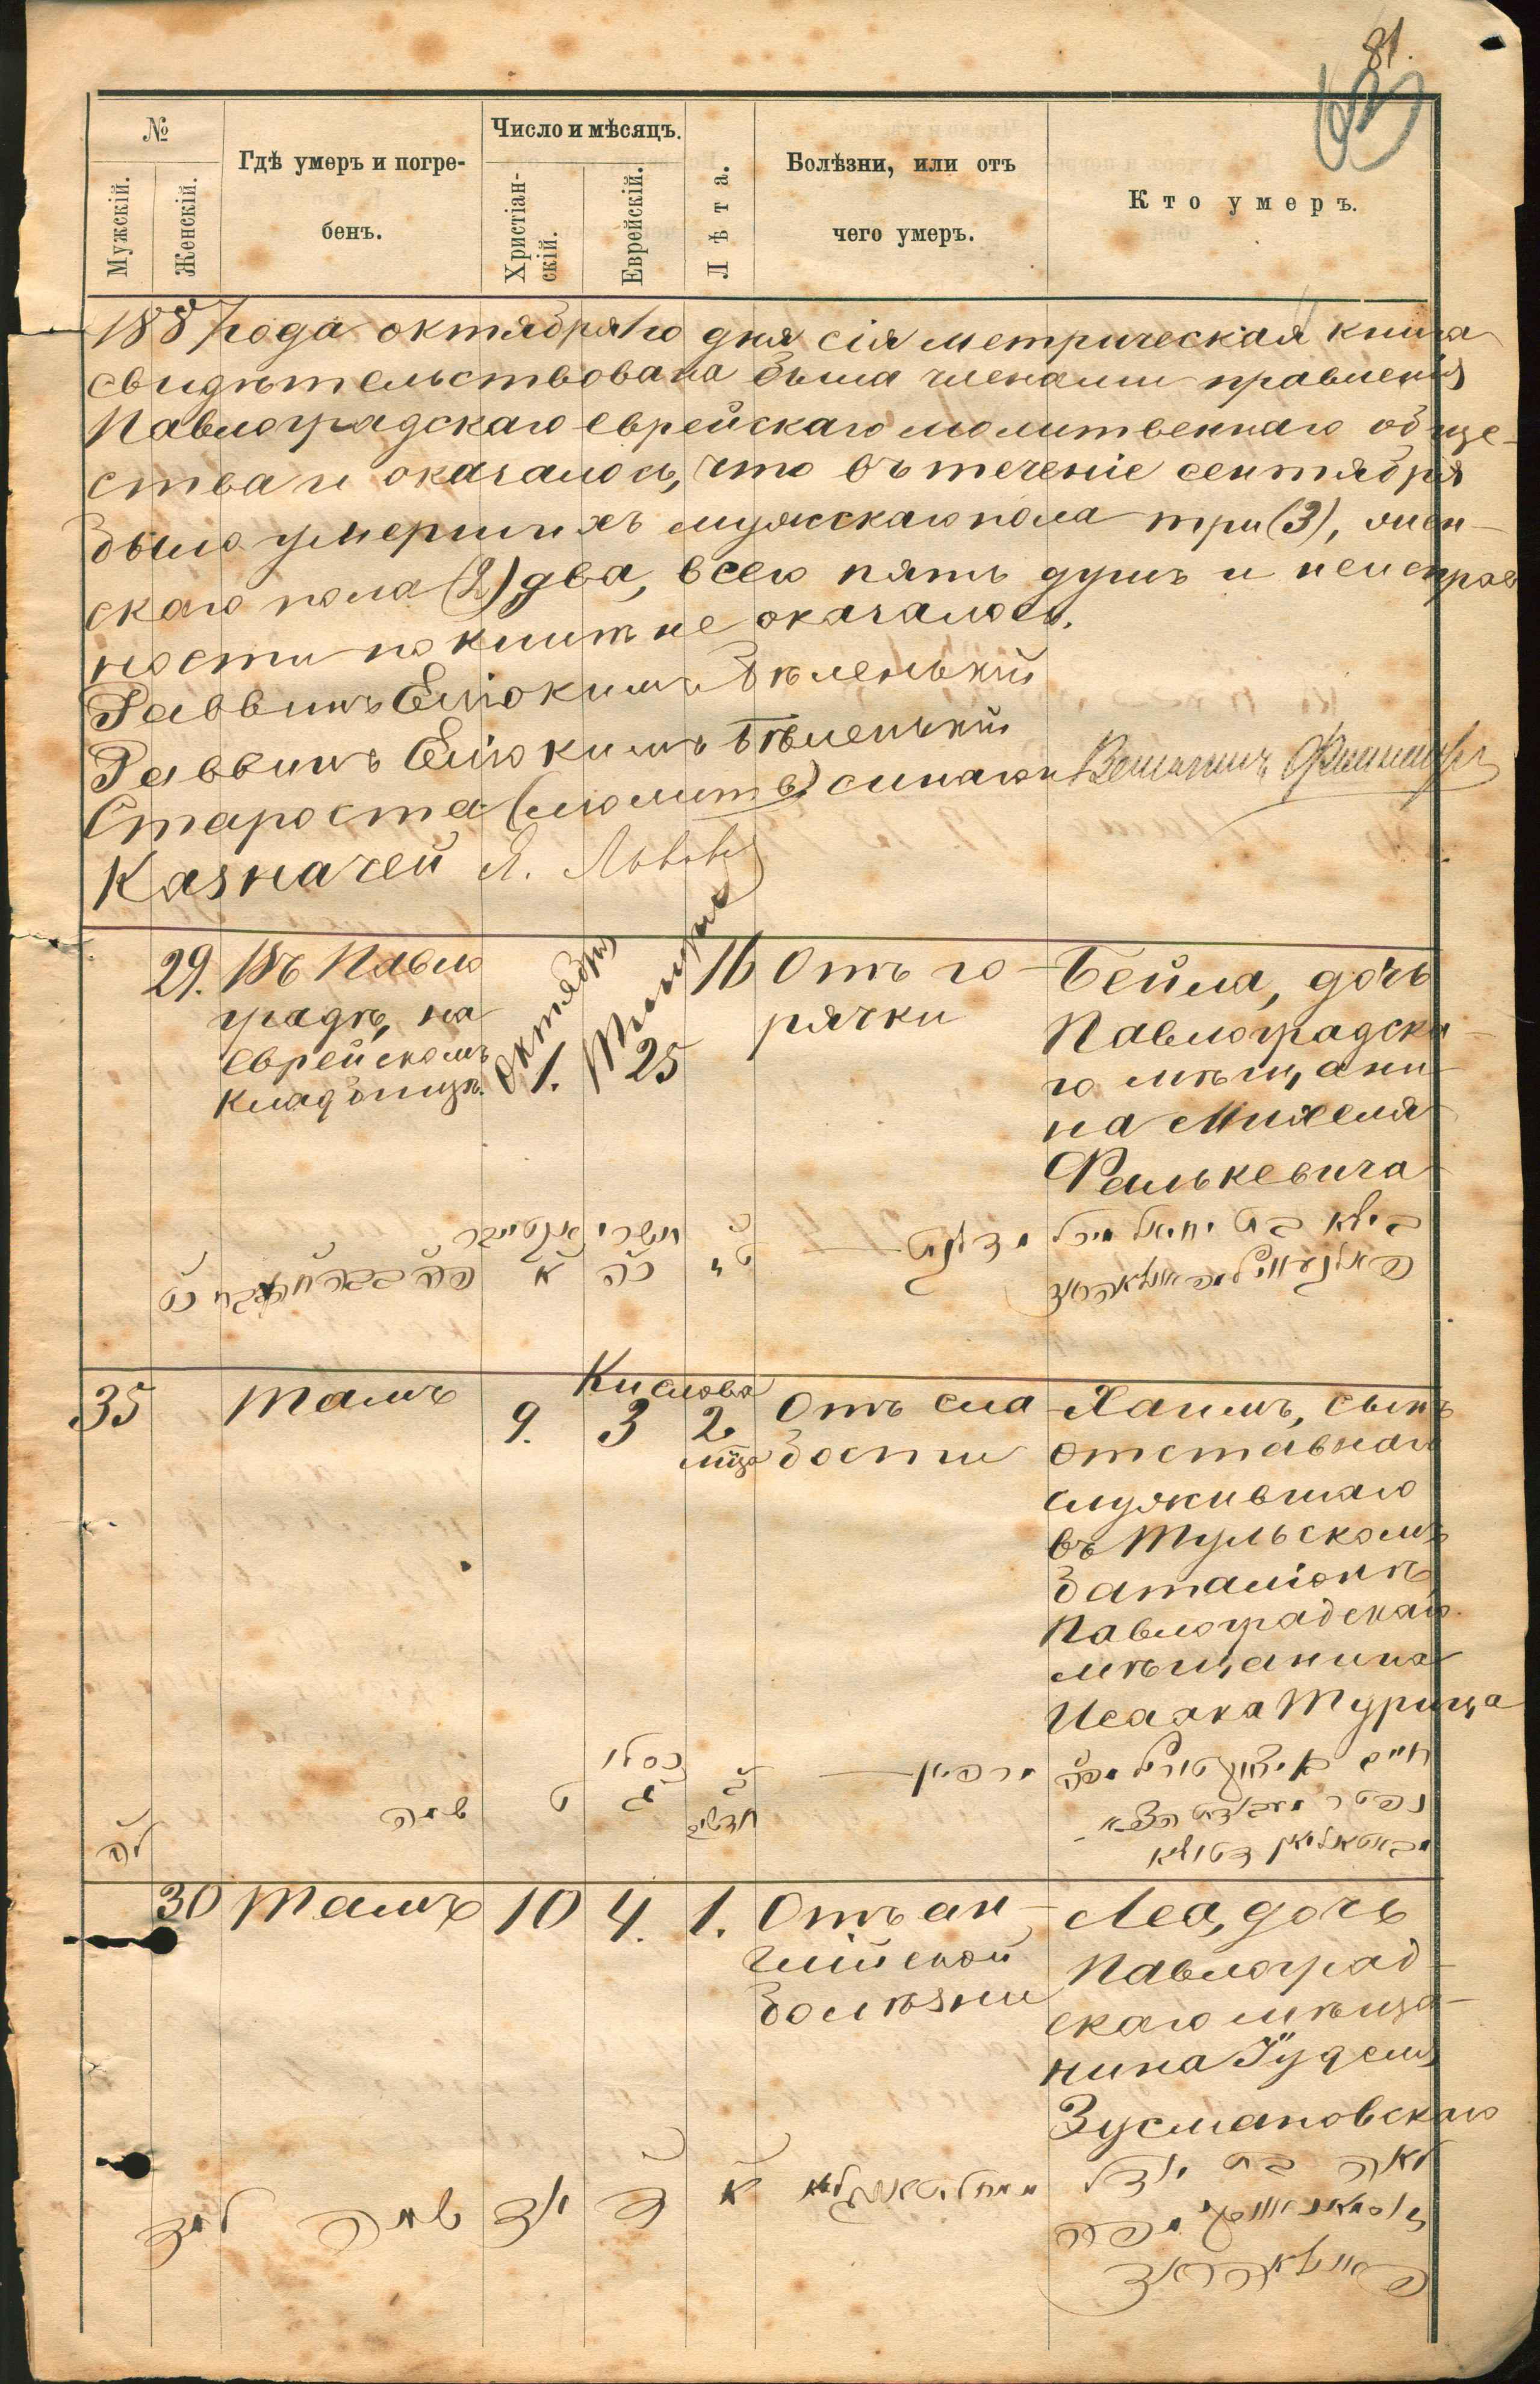 81.
63
№
Мужскій.
Женскій.
Гдѣ умеръ и погре-
бенъ.
Число и мѣсяцъ.
Христіан-
скій.
Еврейскій.
Лѣта.
Болѣзни, или отъ
чего умеръ.
Кто умеръ.
1887 года октября 1го дня сія метрическая книга
свидѣтельствована была членами правленія
Павлоградскаго еврейскаго молитвеннаго обще-
ства и оказалось, что въ теченіе сентября
было умершихъ мужскаго пола три (3), жен-
скаго пола (2) два, всего пять душъ и неисправ
ности по книгѣ не оказалось.
Раввинъ Еліокимъ Бѣленькій
Раввинъ Еліокимъ Бѣленькій
Староста (молитв.) синагоги
Казначей Я. Львовъ
29.
Въ Павло
градѣ, на
еврейскомъ
кладбищѣ.
Октября
1.
Тишри
25
16
Отъ го
рячки
Бейла, дочь
Павлоградска
го мѣщани
на Михеля
Фалькевича
תשרי
כה
א
כט
בילא בת יחיאל מיכל
35
Тамъ
9.
Кислова
3
2
мца
Отъ сла
бости
Хаимъ, сынъ
отставнаго
служившаго
въ Тульскомъ
баталіонѣ
Павлоградскаго
мѣщанина
Исаака Турица
כסלו
ג
ט
ב
חדשים
שמה
לה
חיים
30
Тамъ
10
4.
1.
Отъ ан
глійской
болѣзни
Леа, дочь
Павлоград-
скаго мѣща-
нина Іуделя
Зусмановскаго
לאה בת יודל
א
ד
יוד
שמה
למד